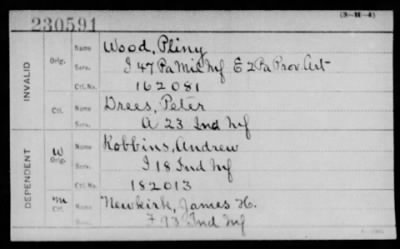 (3-M-4)
230591
INVALID
Orig. Name Wood, Pliny
Serv. I 47 Pa Mil Inf E 2 Pa Prov. Art
Ctf. No. 162081
Ctf. Name Drees, Peter
Serv. A 23 Ind Inf
DEPENDENT
W
Orig. Name Robbins, Andrew
Serv. I 18 Ind Inf
Ctf. No. 182013
M
Ctf. Name Newkirk, James H.
Serv. F 93 Ind Inf